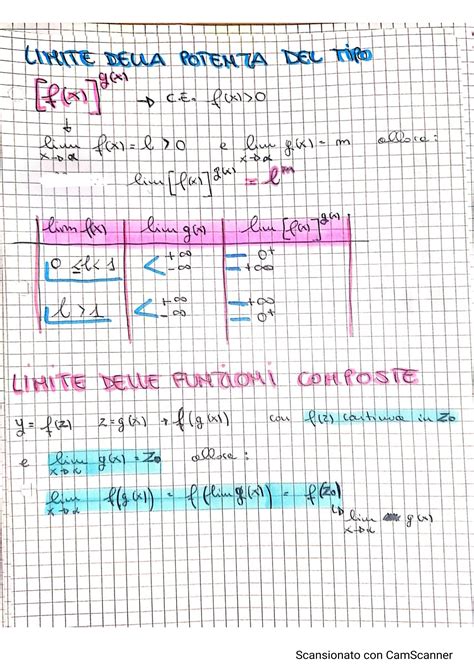 LIMITE DELLA POTENZA DEL TIPO
[f(x)]^g(x) → C.E. f(x)>0
↓
lim x→α f(x) = l > 0 e lim x→α g(x) = m allora:
lim [f(x)]^g(x) = l^m
lim f(x) | lim g(x) | lim [f(x)]^g(x)
0 ≤ l < 1 | < +∞ | = 0⁺
-∞ | = +∞
l > 1 | < +∞ | = +∞
-∞ | = 0⁺
LIMITE DELLE FUNZIONI COMPOSTE
y = f(z) z = g(x) → f(g(x)) con f(z) continua in z₀
e lim x→α g(x) = z₀ allora:
lim x→α f(g(x)) = f(lim g(x)) = f(z₀)
↳ lim x→α g(x)
Scansionato con CamScanner